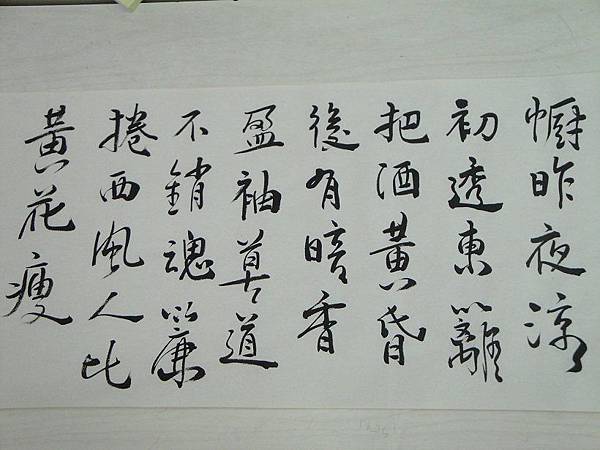 幮昨夜涼
初透東籬
把酒黃昏
後有暗香
盈袖莫道
不銷魂簾
捲西風人比
黃花瘦